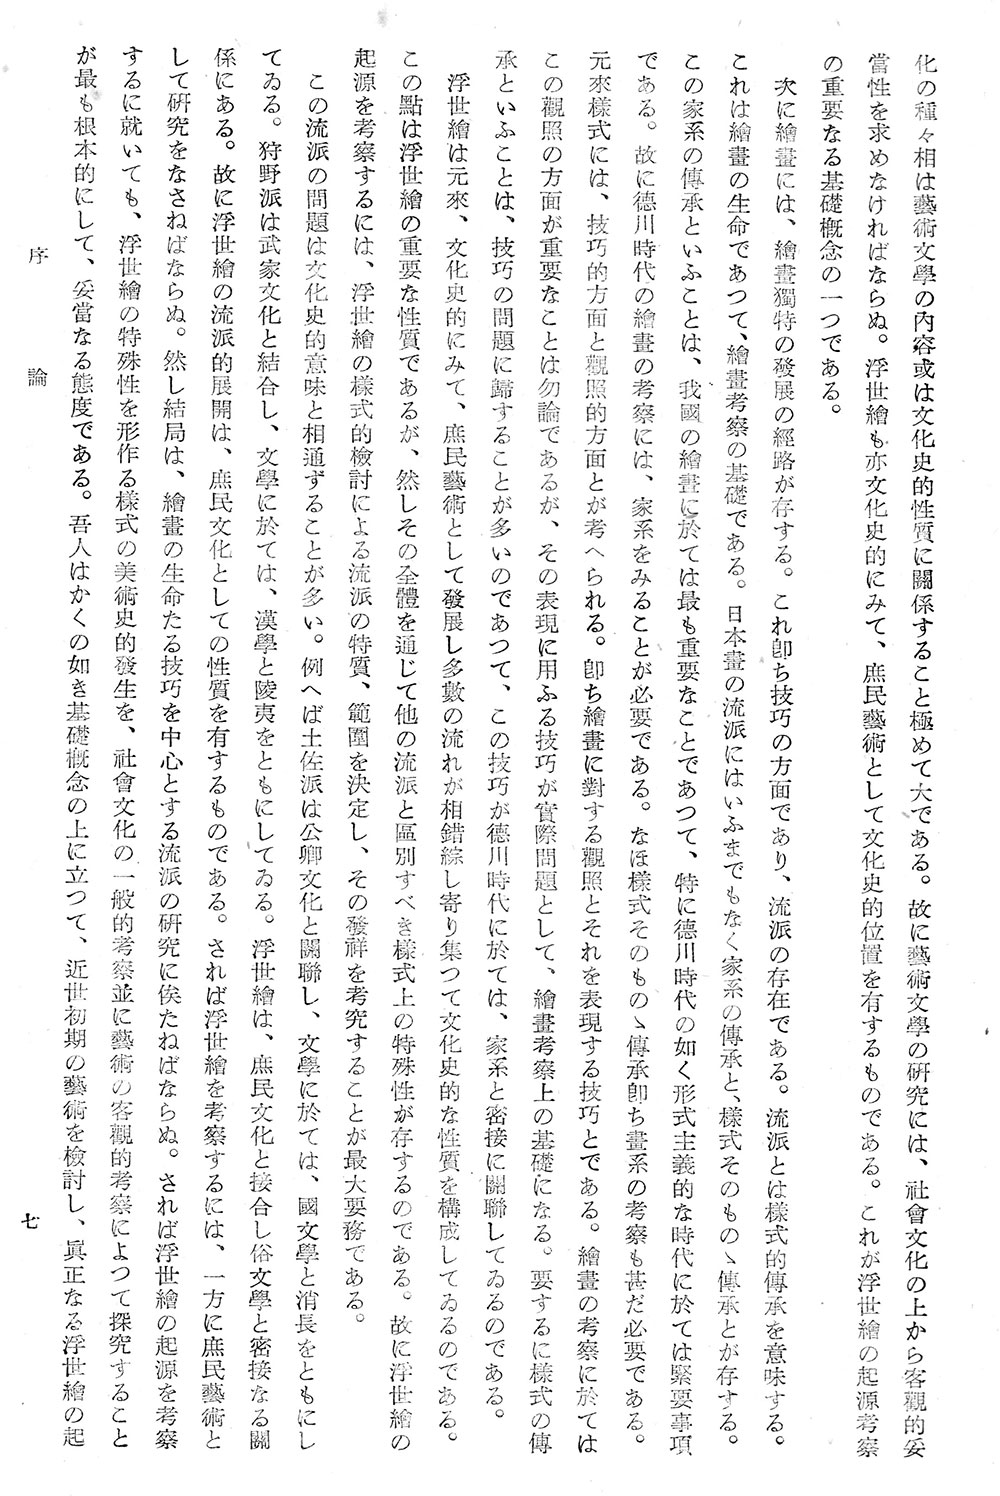 化の種々相は藝術文學の內容或は文化史的性質に關係すること極めて大である。故に藝術文學の硏究には、社會文化の上から客觀的妥
當性を求めなければならぬ。浮世繪も亦文化史的にみて、庶民藝術として文化史的位置を有するものである。これが浮世繪の起源考察
の重要なる基礎槪念の一つである。
次に繪畫には、繪畫獨特の發展の經路が存する。これ卽ち技巧の方面であり、流派の存在である。流派とは樣式的傳承を意味する。
これは繪畫の生命であつて、繪畫考察の基礎である。日本畫の流派にはいふまでもなく家系の傳承と、樣式そのものゝ傳承とが存する。
この家系の傳承といふことは、我國の繪畫に於ては最も重要なことであつて、特に德川時代の如く形式主義的な時代に於ては緊要事項
である。故に德川時代の繪畫の考察には、家系をみることが必要である。なほ樣式そのものゝ傳承卽ち畫系の考察も甚だ必要である。
元來樣式には、技巧的方面と觀照的方面とが考へられる。卽ち繪畫に對する觀照とそれを表現する技巧とである。繪畫の考察に於ては
この觀照の方面が重要なことは勿論であるが、その表現に用ふる技巧が實際問題として、繪畫考察上の基礎になる。要するに樣式の傳
承といふことは、技巧の問題に歸することが多いのであつて、この技巧が德川時代に於ては、家系と密接に關聯してゐるのである。
浮世繪は元來、文化史的にみて、庶民藝術として發展し多數の流れが相錯綜し寄り集つて文化史的な性質を構成してゐるのである。
この點は浮世繪の重要な性質であるが、然しその全體を通じて他の流派と區別すべき樣式上の特殊性が存するのである。故に浮世繪の
起源を考察するには、浮世繪の樣式的檢討による流派の特質、範圍を決定し、その發祥を考究することが最大要務である。
この流派の問題は文化史的意味と相通ずることが多い。例へば土佐派は公卿文化と關聯し、文學に於ては、國文學と消長をともにし
てゐる。狩野派は武家文化と結合し、文學に於ては、漢學と陵夷をともにしてゐる。浮世繪は、庶民文化と接合し俗文學と密接なる關
係にある。故に浮世繪の流派的展開は、庶民文化としての性質を有するものである。されば浮世繪を考察するには、一方に庶民藝術と
して硏究をなさねばならぬ。然し結局は、繪畫の生命たる技巧を中心とする流派の硏究に俟たねばならぬ。されば浮世繪の起源を考察
するに就いても、浮世繪の特殊性を形作る樣式の美術史的發生を、社會文化の一般的考察並に藝術の客觀的考察によつて探究すること
が最も根本的にして、妥當なる態度である。吾人はかくの如き基礎槪念の上に立つて、近世初期の藝術を檢討し、眞正なる浮世繪の起
序論
七